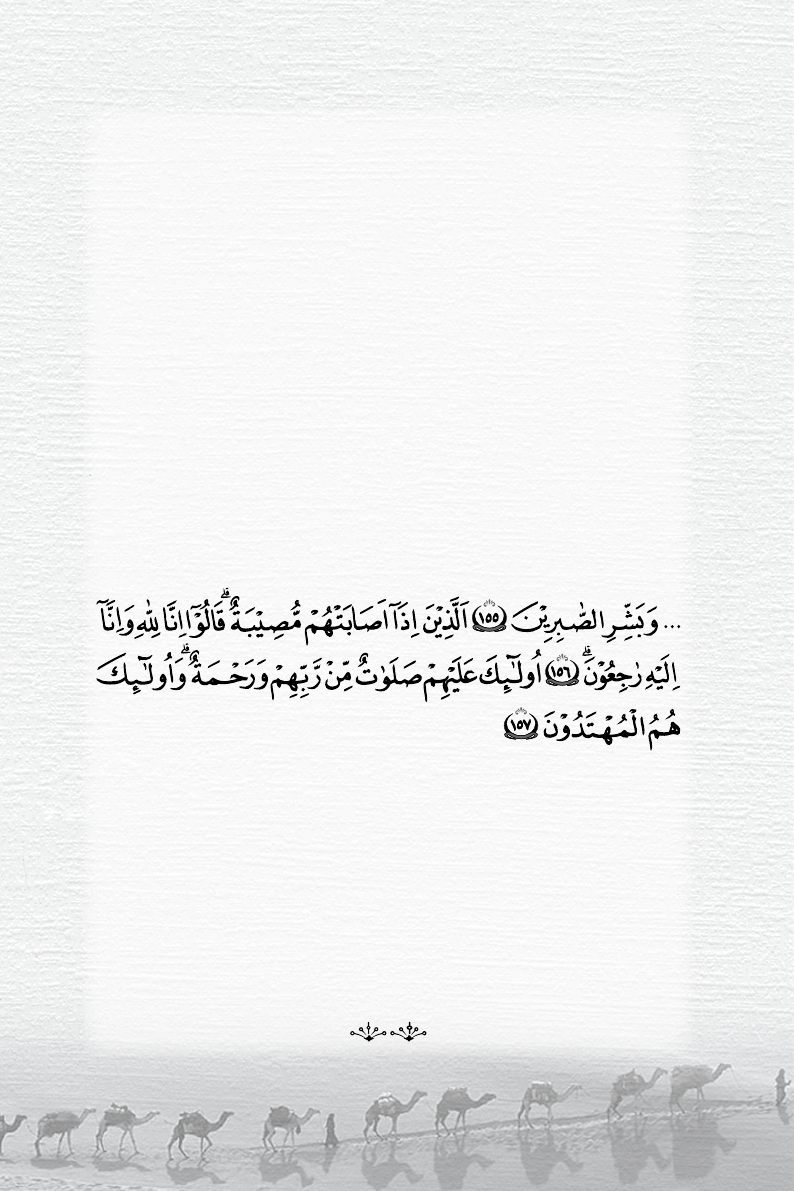 ... وَبَشِّرِ الصّٰبِرِيْنَ ﴿١٥٥﴾ اَلَّذِيْنَ اِذَآ اَصَابَتْهُمْ مُّصِيْبَةٌ ۙ قَالُوْٓا اِنَّا لِلّٰهِ وَاِنَّآ
اِلَيْهِ رٰجِعُوْنَ ۗ ﴿١٥٦﴾ اُولٰٓئِكَ عَلَيْهِمْ صَلَوٰتٌ مِّنْ رَّبِّهِمْ وَرَحْمَةٌ ۗ وَاُولٰٓئِكَ
هُمُ الْمُهْتَدُوْنَ ﴿١٥٧﴾